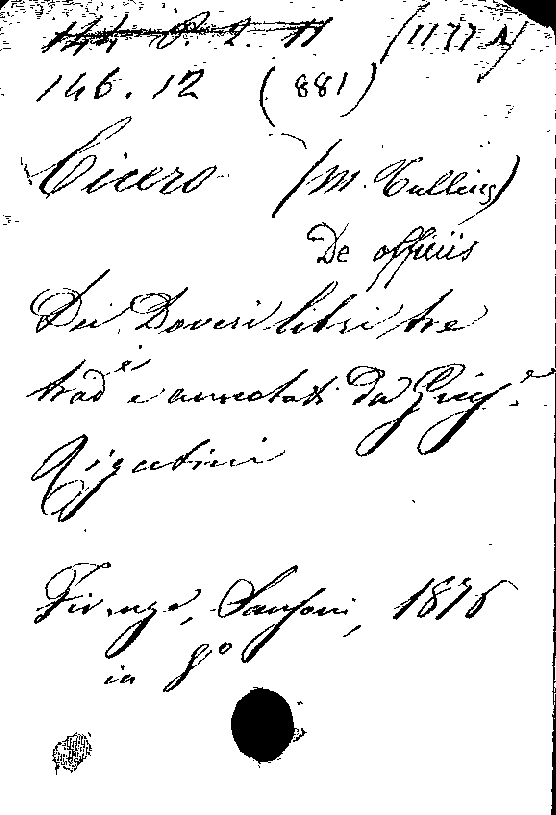 144 S. 2. 11 (1177A)
146.12 (881)
Cicero (M. Tullius)
De officiis
Dei Doveri libri tre
trad.i e annotati da Gius.e
Rigutini
Firenze, Sansoni, 1876
in 8o